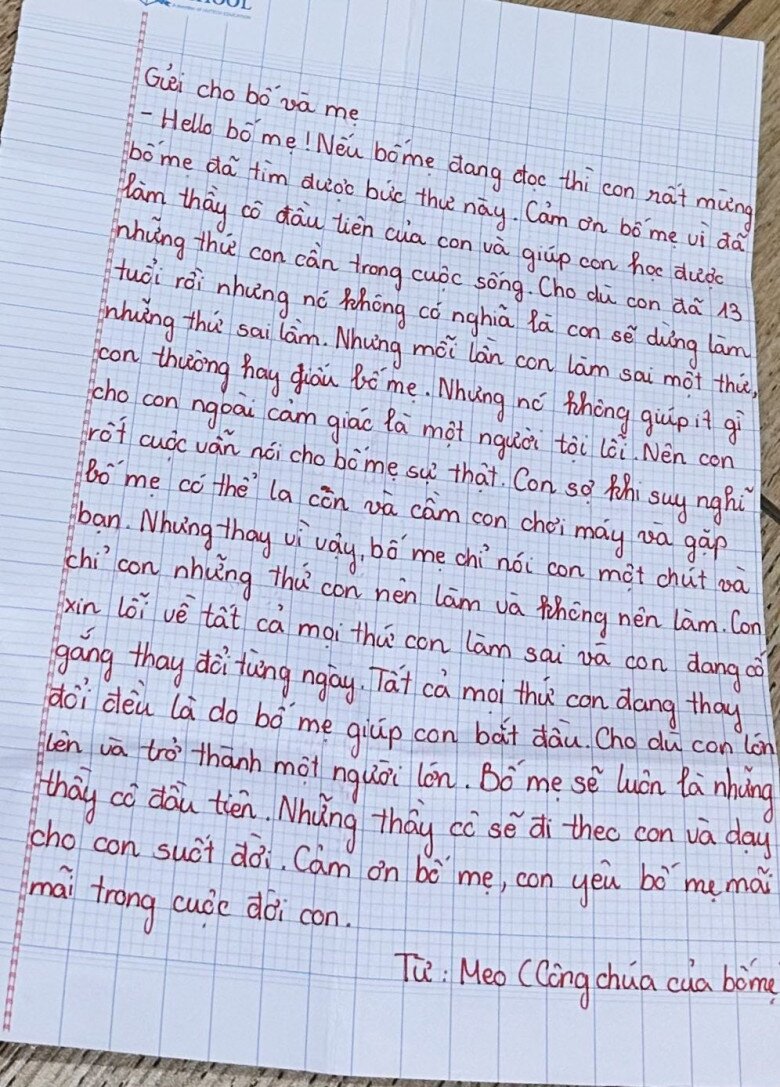 OOL
Gửi cho bố và mẹ
- Hello bố mẹ! Nếu bố mẹ đang đọc thì con rất mừng
bố mẹ đã tìm được bức thư này. Cảm ơn bố mẹ vì đã
làm thầy cô đầu tiên của con và giúp con học được
những thứ con cần trong cuộc sống. Cho dù con đã 13
tuổi rồi nhưng nó không có nghĩa là con sẽ dừng làm
những thứ sai lầm. Nhưng mỗi lần con làm sai một thứ,
con thường hay giấu bố mẹ. Nhưng nó không giúp ít gì
cho con ngoài cảm giác là một người tội lỗi. Nên con
rốt cuộc vẫn nói cho bố mẹ sự thật. Con sợ khi suy nghĩ
bố mẹ có thể la con và cấm con chơi máy và gặp
bạn. Nhưng thay vì vậy, bố mẹ chỉ nói con một chút và
chỉ con những thứ con nên làm và không nên làm. Con
xin lỗi về tất cả mọi thứ con làm sai và con đang cố
gắng thay đổi từng ngày. Tất cả mọi thứ con đang thay
đổi đều là do bố mẹ giúp con bắt đầu. Cho dù con lớn
lên và trở thành một người lớn. Bố mẹ sẽ luôn là những
thầy cô đầu tiên. Những thầy cô sẽ đi theo con và dạy
cho con suốt đời. Cảm ơn bố mẹ, con yêu bố mẹ mãi
mãi trong cuộc đời con.
Từ: Meo (Công chúa của bố mẹ